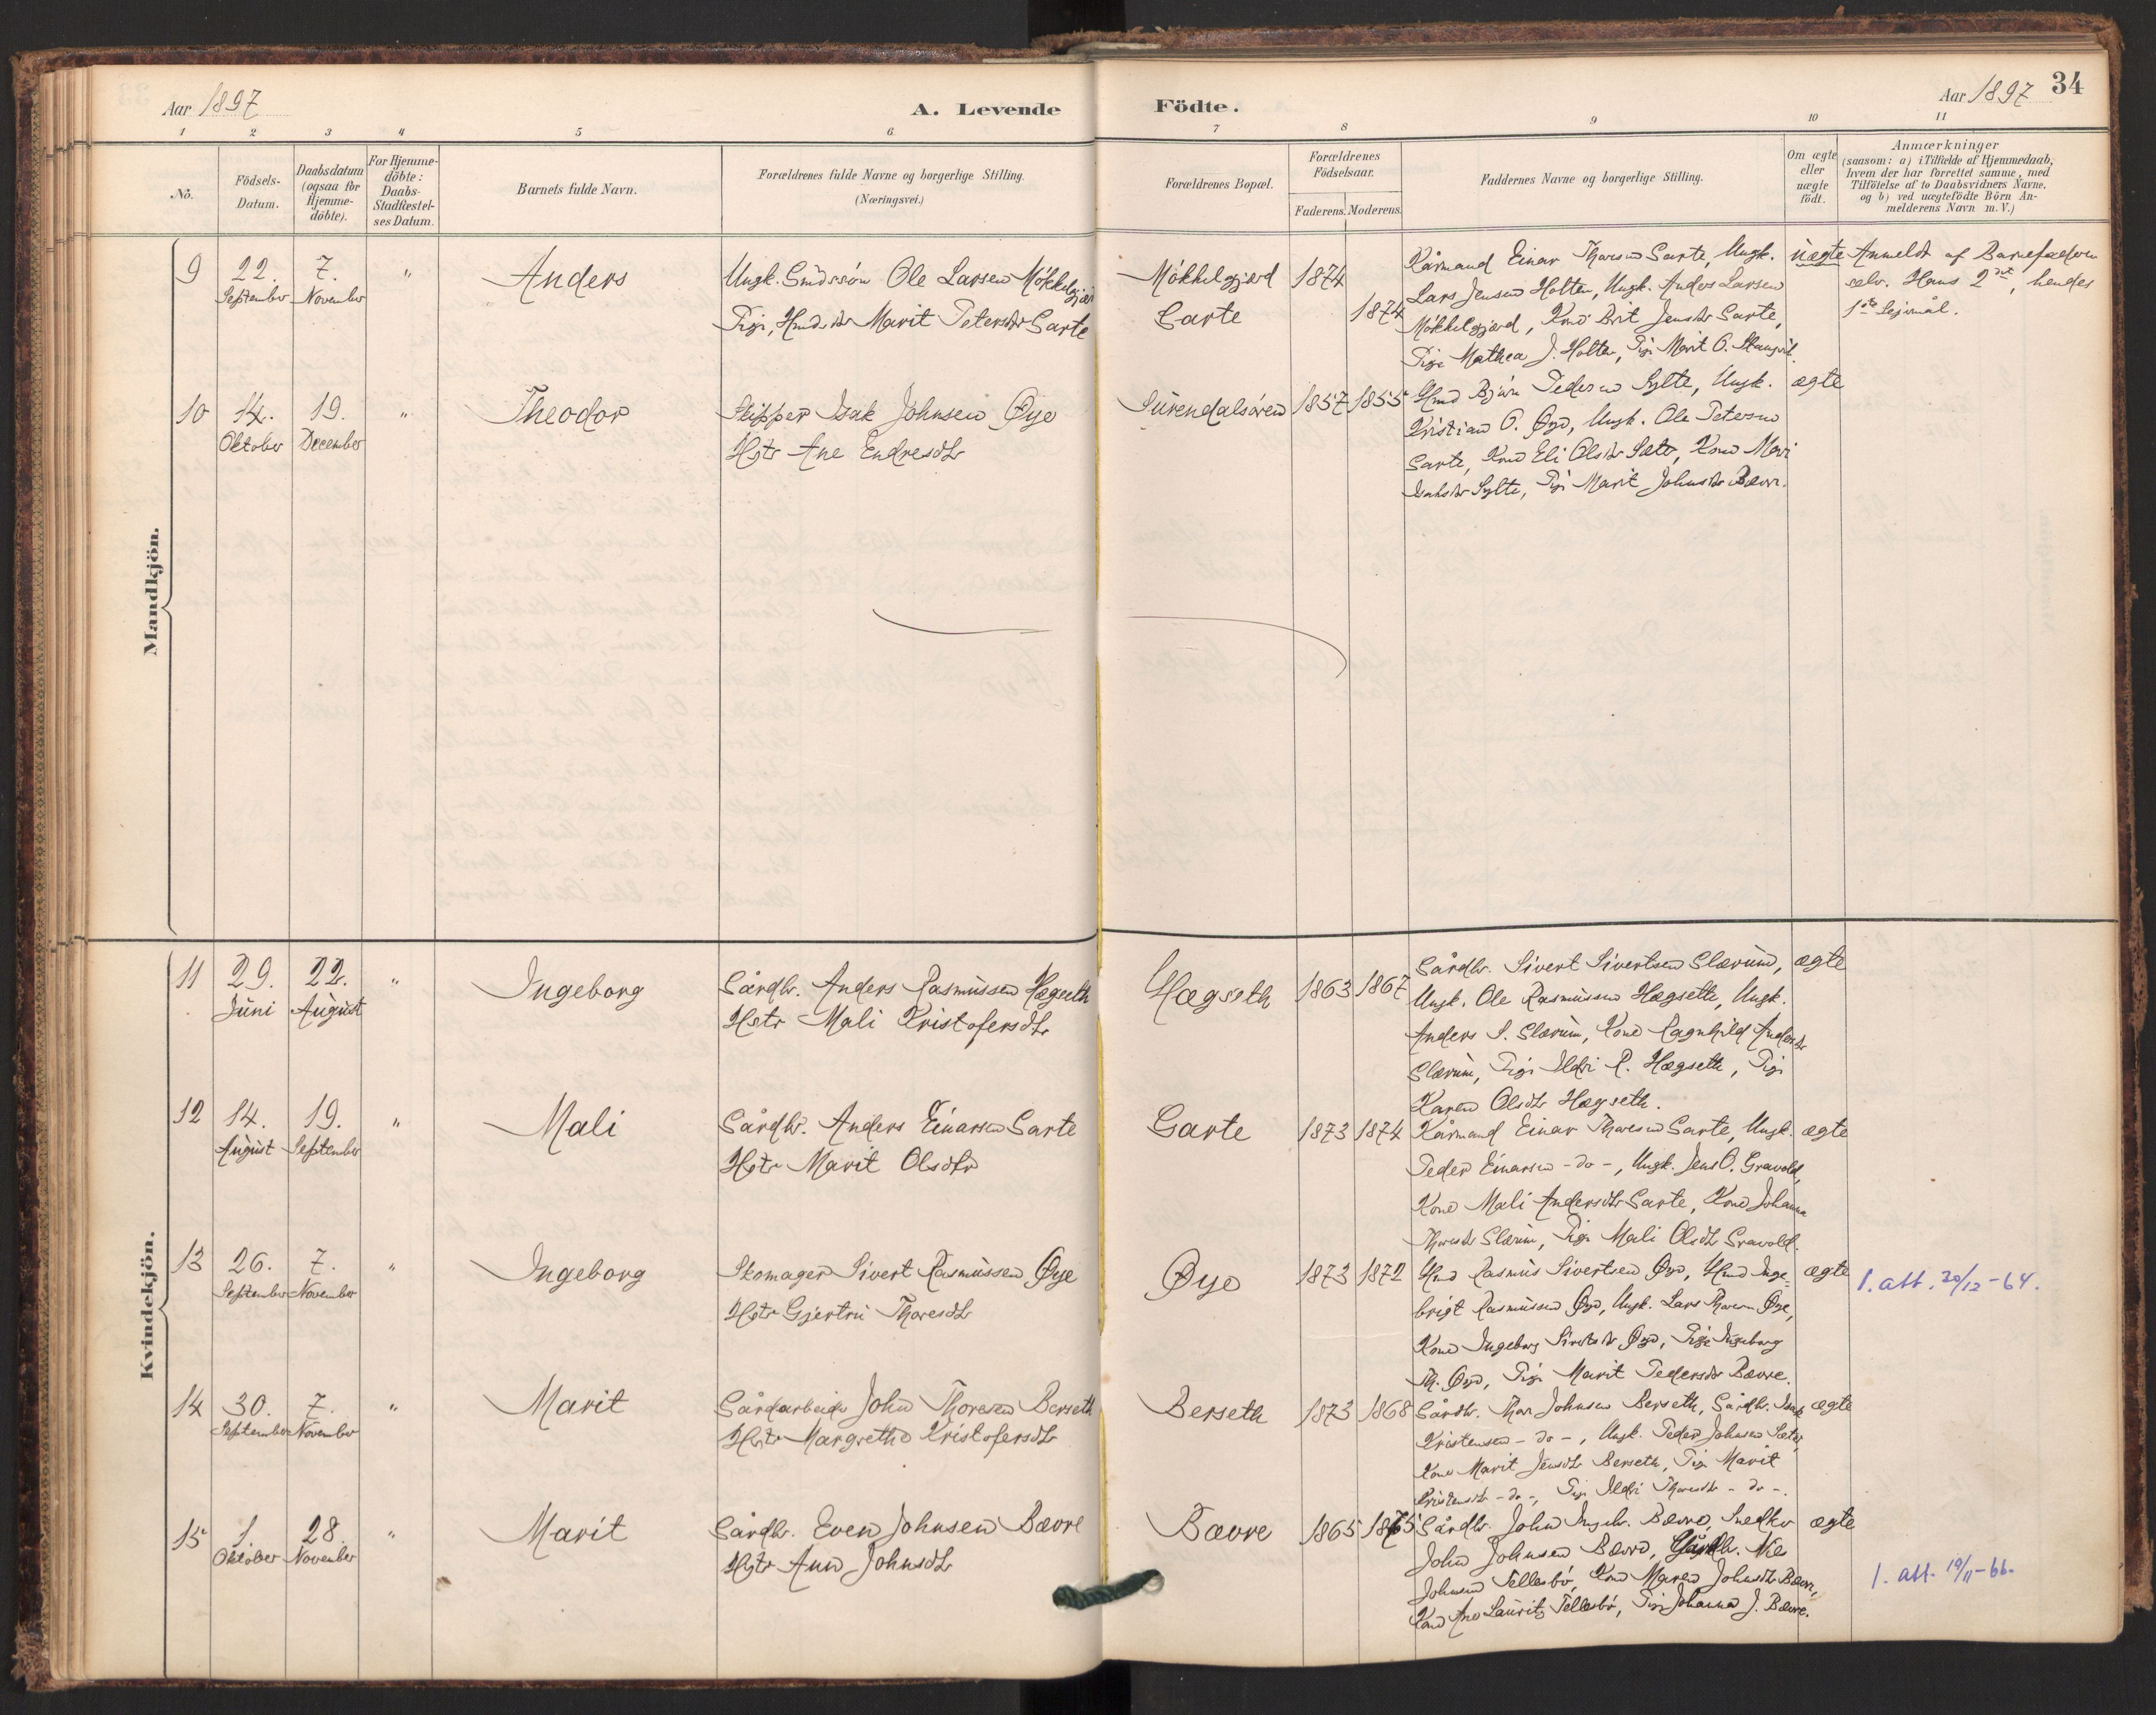 Aar 1897 A. Levende Födte. Aar 1897 34
1 2 3 4 5 6. 7 8 9 10 11
No. Födsels-Datum. Daabsdatum (ogsaa for Hjemme-döbte). For Hjemme-döbte: Daabs-Stadfæstel-ses Datum. Barnets fulde Navn. Forældrenes fulde Navne og borgerlige Stilling. (Næringsvei.) Forældrenes Bopæl. Forældrenes Födselsaar. Faderens. Moderens. Faddernes Navne og borgerlige Stilling. Om ægte eller uægte födt. Anmærkninger (saasom: a) i Tilfælde af Hjemmedaab, hvem der har forrettet samme, med Tilföielse af to Daabsvidners Navne, og b) ved uægtefödte Börn An-melderens Navn m. V.)
Mandkjön.
9 22. September 7. November " Anders
Ungk. Smedssön Ole Larsen Mökkelgjærd
Pige, Marit Petersdtr Garte
Mökkelgjærd 1874
Garte 1874
Kårmand Einar Thoresen Garte, Ungk.
Lars Jensen Holten, Ungk. Anders Larsen
Mökkelgjærd, Kone Brit Jensdtr Garte,
Pige Mathea J. Holten, Pige Marit O.
uægte
Anmeldt af Barnefaderen
selv. Hans 2det, hendes
1ste Leiermål.
10 14. Oktober 19. December " Theodor
Skipper Isak Johnsen Øye
Hstr Ane Endresdtr
Surendalsören 1857 1855
Hmd Björn Pedersen Sylte, Ungk.
Kristian O. Øye, Ungk. Ole Petersen
Garte, Kone Eli Olsdtr Sæter, Kone Mari
Isaksdtr Sylte, Pige Marit Johnsdtr Bævre.
ægte
Kvindekjön.
11 29. Juni 22. August " Ingeborg
Gårdbr. Anders Rasmussen Hægseth
Hstr Mali Kristofersdtr
Hægseth 1863 1867
Gårdbr. Sivert Sivertsen Glærum,
Ungk. Ole Rasmussen Hægseth, Ungk.
Anders S. Glærum, Kone Ragnhild Andersdtr
Glærum, Pige Ildri R. Hægseth, Pige
Karen Olsdtr Hægseth.
ægte
12 14. August 19. September " Mali
Gårdbr. Anders Einarsen Garte
Hstr Marit Olsdtr
Garte 1873 1874
Kårmand Einar Thoresen Garte, Ungk.
Peder Einarsen - do -, Ungk. Jens O. Gravold,
Kone Mali Andersdtr Garte, Kone Johanna
Thoresdtr Glærum, Pige Mali Olsdtr Gravold.
ægte
13 26. September 7. November " Ingeborg
Skomager Sivert Rasmussen Øye
Hstr Gjertru Thoresdtr
Øye 1873 1872
Hmd Rasmus Sivertsen Øye, Hmd Inge-
brigt Rasmussen Øye, Ungk. Lars Thoresen Øye,
Kone Ingeborg Sivertsdtr Øye, Pige Ingeborg
Th. Øye, Pige Marit Pedersdtr Bævre.
ægte
1. att. 20/12-64.
14 30. September 7. November " Marit
Gårdarbeider John Thoresen Berseth
Hstr Margrethe Kristofersdtr
Berseth 1873 1868
Gårdbr. Thore Johnsen Berseth, Gårdbr. Isak
Kristensen - do -, Ungk. Peder Johnsen Sæter,
Kone Marit Jensdtr Berseth, Pige Marit
Kristensdtr - do -, Pige Ildri Thoresdtr - do -.
ægte
15 1. Oktober 28. November " Marit
Gårdbr. Even Johnsen Bævre
Hstr Ann Johnsdtr
Bævre 1865 1865
Gårdbr. John Ingebr. Bævre, Snedker
John Johnsen Bævre, Gårdbr. Nils
Johnsen Tellesbö, Kone Maren Johnsdtr Bævre,
Kone Ane Lauritz Tellesbö, Pige Johanna J. Bævre.
ægte
1. att. 19/11-66.